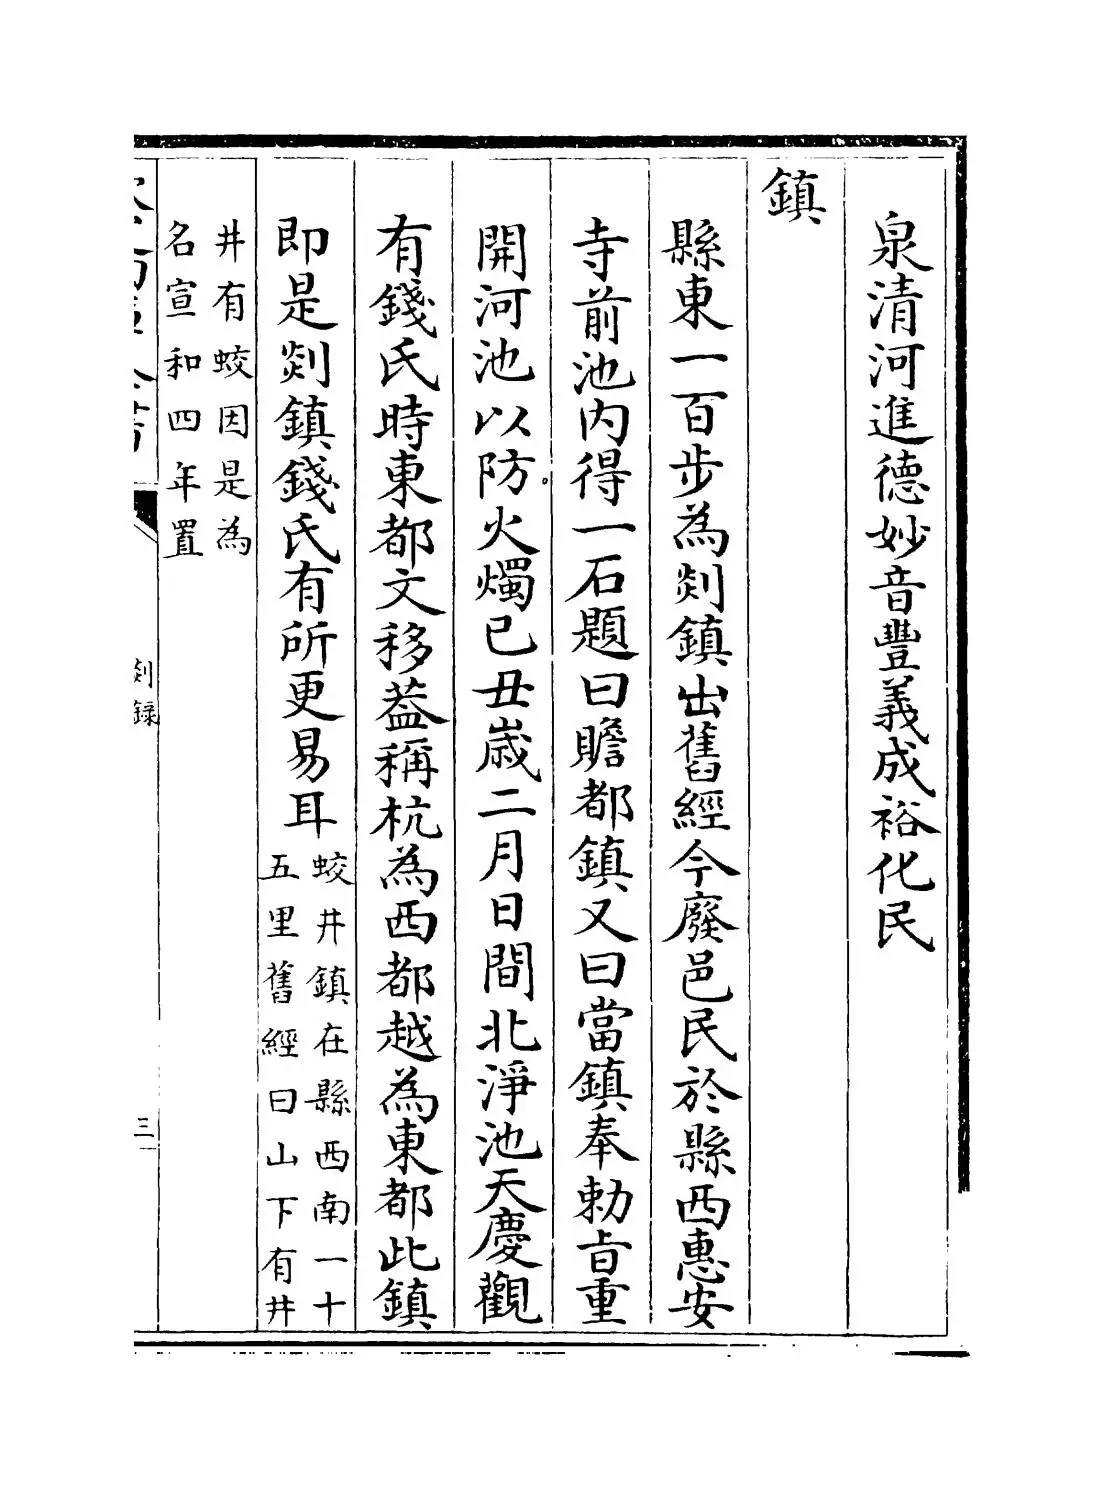 泉清河進德妙音豐義成裕化民
鎮
縣東一百步為剡鎮出舊經今廢邑民於縣西惠安
寺前池内得一石題曰贍都鎮又曰當鎮奉勅旨重
開河池以防火燭已丑歳二月日間北淨池天慶觀
有錢氏時東都文移葢稱杭為西都越為東都此鎮
即是剡鎮錢氏有所更易耳
蛟井鎮在縣西南一十
五里舊經曰山下有井
井有蛟因是為
名宣和四年置
剡録
三